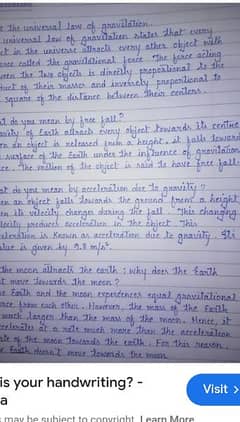 the universal law of gravitation.
universal law of gravitation states that every
ct in the universe attracts every other object with
orce called the gravitational force. The force acting
ween the two objects is directly proportional to the
duct of their masses and inversely proportional to
square of the distance between their centers.
t do you mean by free fall?
avity of Earth attracts every object towards its centre
en an object is released from a height, it falls towards
surface of the Earth under the influence of gravitation
ce. The motion of the object is said to have free fall.
at do you mean by acceleration due to gravity?
en an object falls towards the ground from a height,
en its velocity changes during the fall. This changing
locity produces acceleration in the object. This
eleration is known as acceleration due to gravity. Its
alue is given by 9.8 m/s².
the moon attracts the earth; why does the Earth
t move towards the moon?
e Earth and the moon experiences equal gravitational
rce from each other. However, the mass of the Earth
much larger than the mass of the moon. Hence, it
ccelerates at a rate much more than the acceleration
ate of the moon towards the earth. For this reason,
e Earth doesn't move towards the moon.
is your handwriting? -
a
Visit >
may be subject to copyright. Learn More